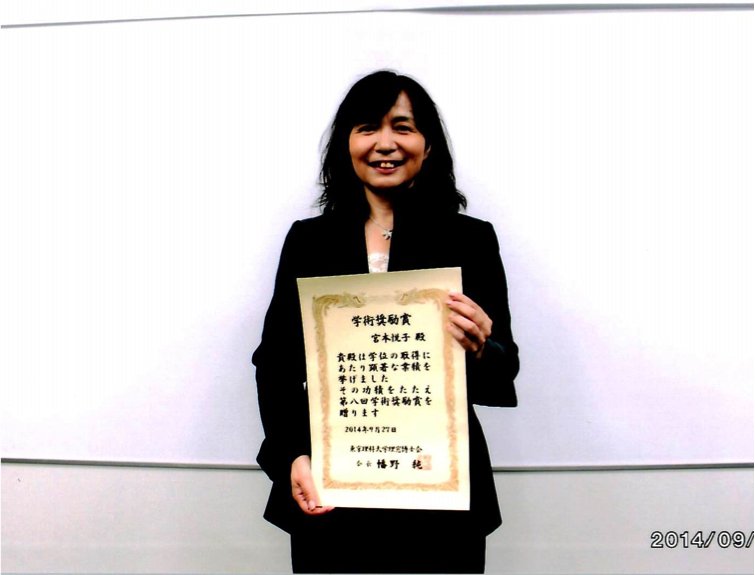 学術奨励賞
宮本悦子 殿
貴殿は学位の取得に
あたり顕著な業積を
挙げました
その功積をたたえ
第八回学術奨励賞を
贈ります
2014年9月27日
東京理科大学理窓博士会
会長 幡野 純
2014/09/